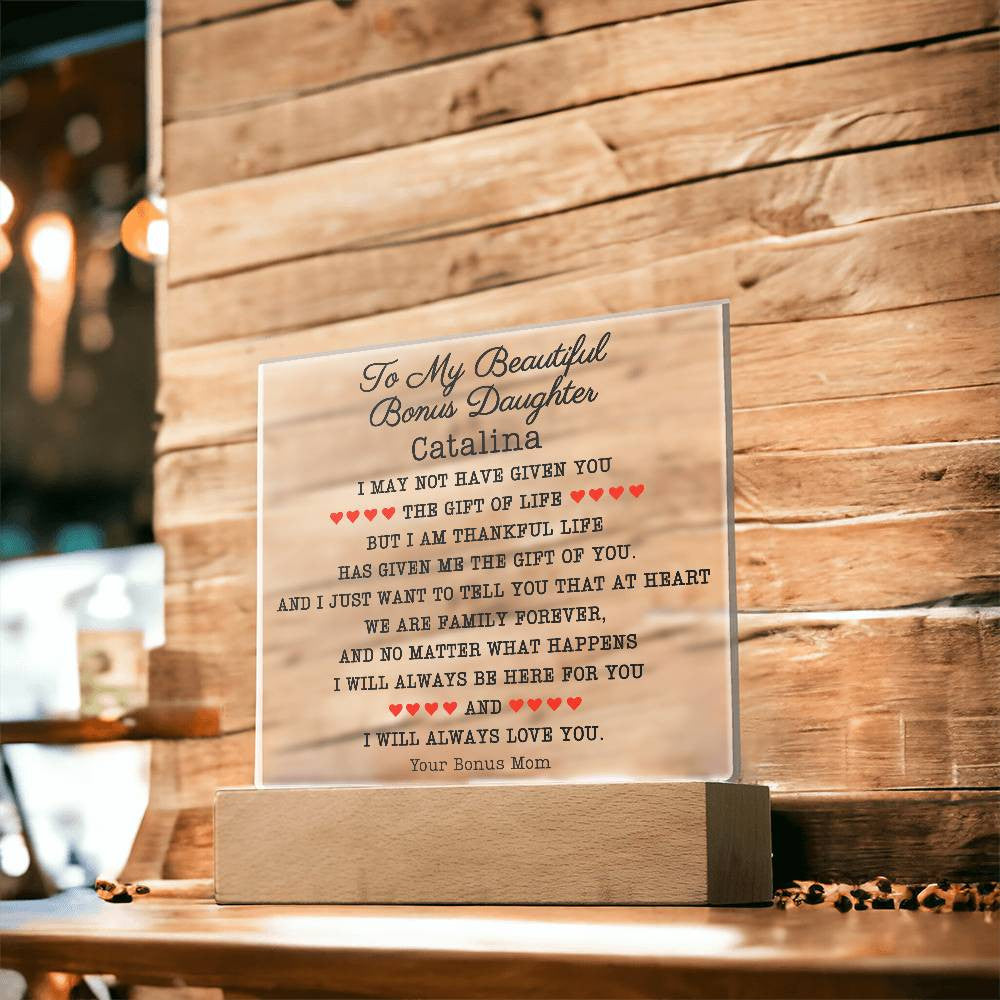 To My Beautiful
Bonus Daughter
Catalina
I MAY NOT HAVE GIVEN YOU
♥♥♥♥ THE GIFT OF LIFE ♥♥♥♥
BUT I AM THANKFUL LIFE
HAS GIVEN ME THE GIFT OF YOU.
AND I JUST WANT TO TELL YOU THAT AT HEART
WE ARE FAMILY FOREVER,
AND NO MATTER WHAT HAPPENS
I WILL ALWAYS BE HERE FOR YOU
♥♥♥♥ AND ♥♥♥♥
I WILL ALWAYS LOVE YOU.
Your Bonus Mom